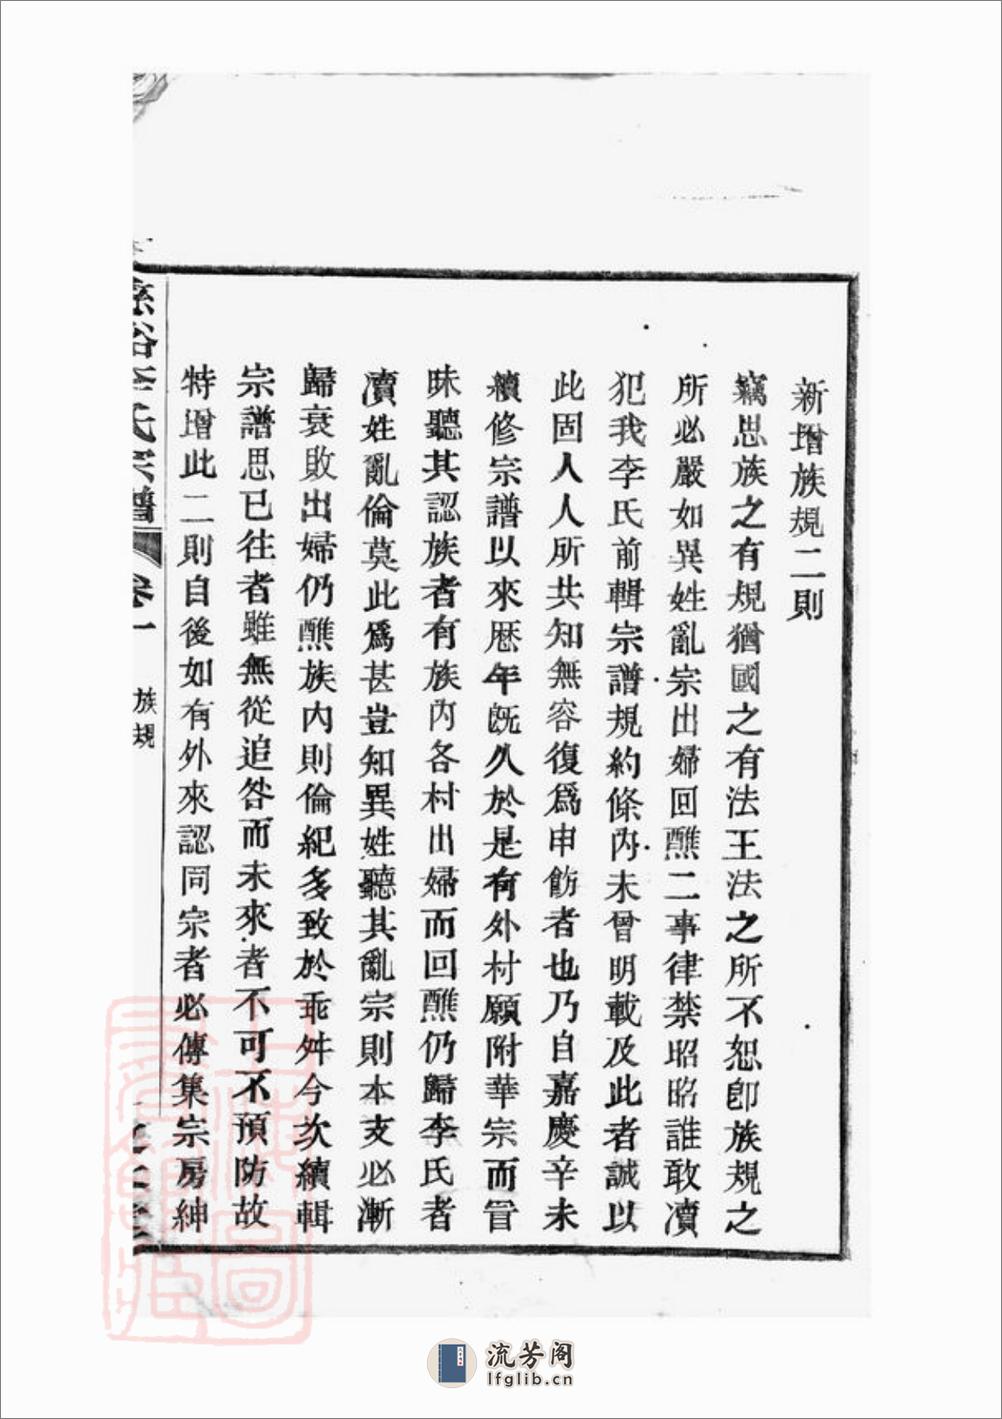 新增族規二則
竊思族之有規猶國之有法王法之所不恕卽族規之
所必嚴如異姓亂宗出婦回醮二事律禁昭昭誰敢瀆
犯我李氏前輯宗譜規約條內未曾明載及此者誠以
此固人人所共知無容復爲申飭者也乃自嘉慶辛未
續修宗譜以來歷年旣久於是有外村願附華宗而冒
昧聽其認族者有族內各村出婦而回醮仍歸李氏者
瀆姓亂倫莫此爲甚豈知異姓聽其亂宗則本支必漸
歸衰敗出婦仍醮族內則倫紀多致於乖舛今次續輯
宗譜思已往者雖無從追咎而未來者不可不預防故
特增此二則自後如有外來認同宗者必傳集宗房紳
李氏宗譜 卷一 族規
流芳阁
lfglib.cn